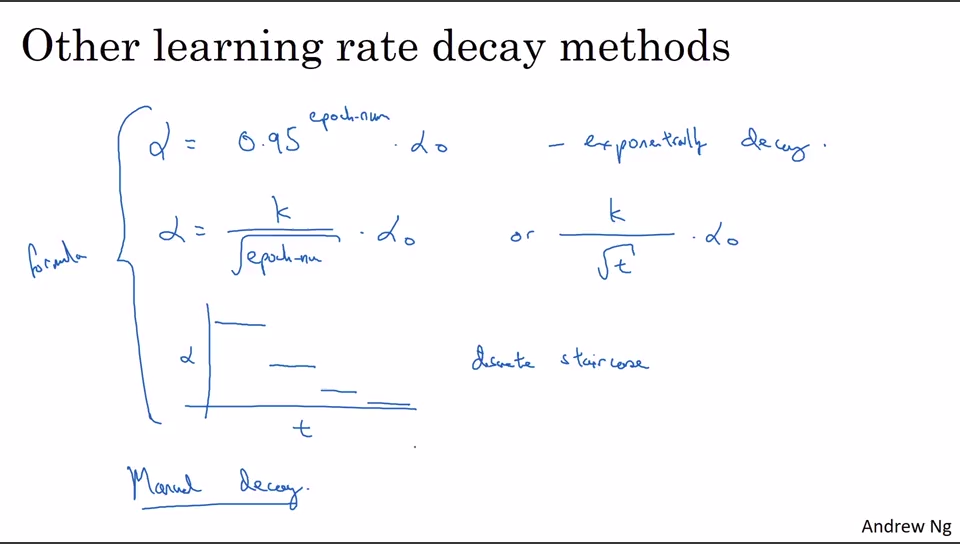 Other learning rate decay methods
α = 0.95^epoch-num · α₀ – exponentially decay.
formula
α = k / √epoch-nu · α₀ or k / √t · α₀
α
discrete staircase
t
Manual decay.
Andrew Ng